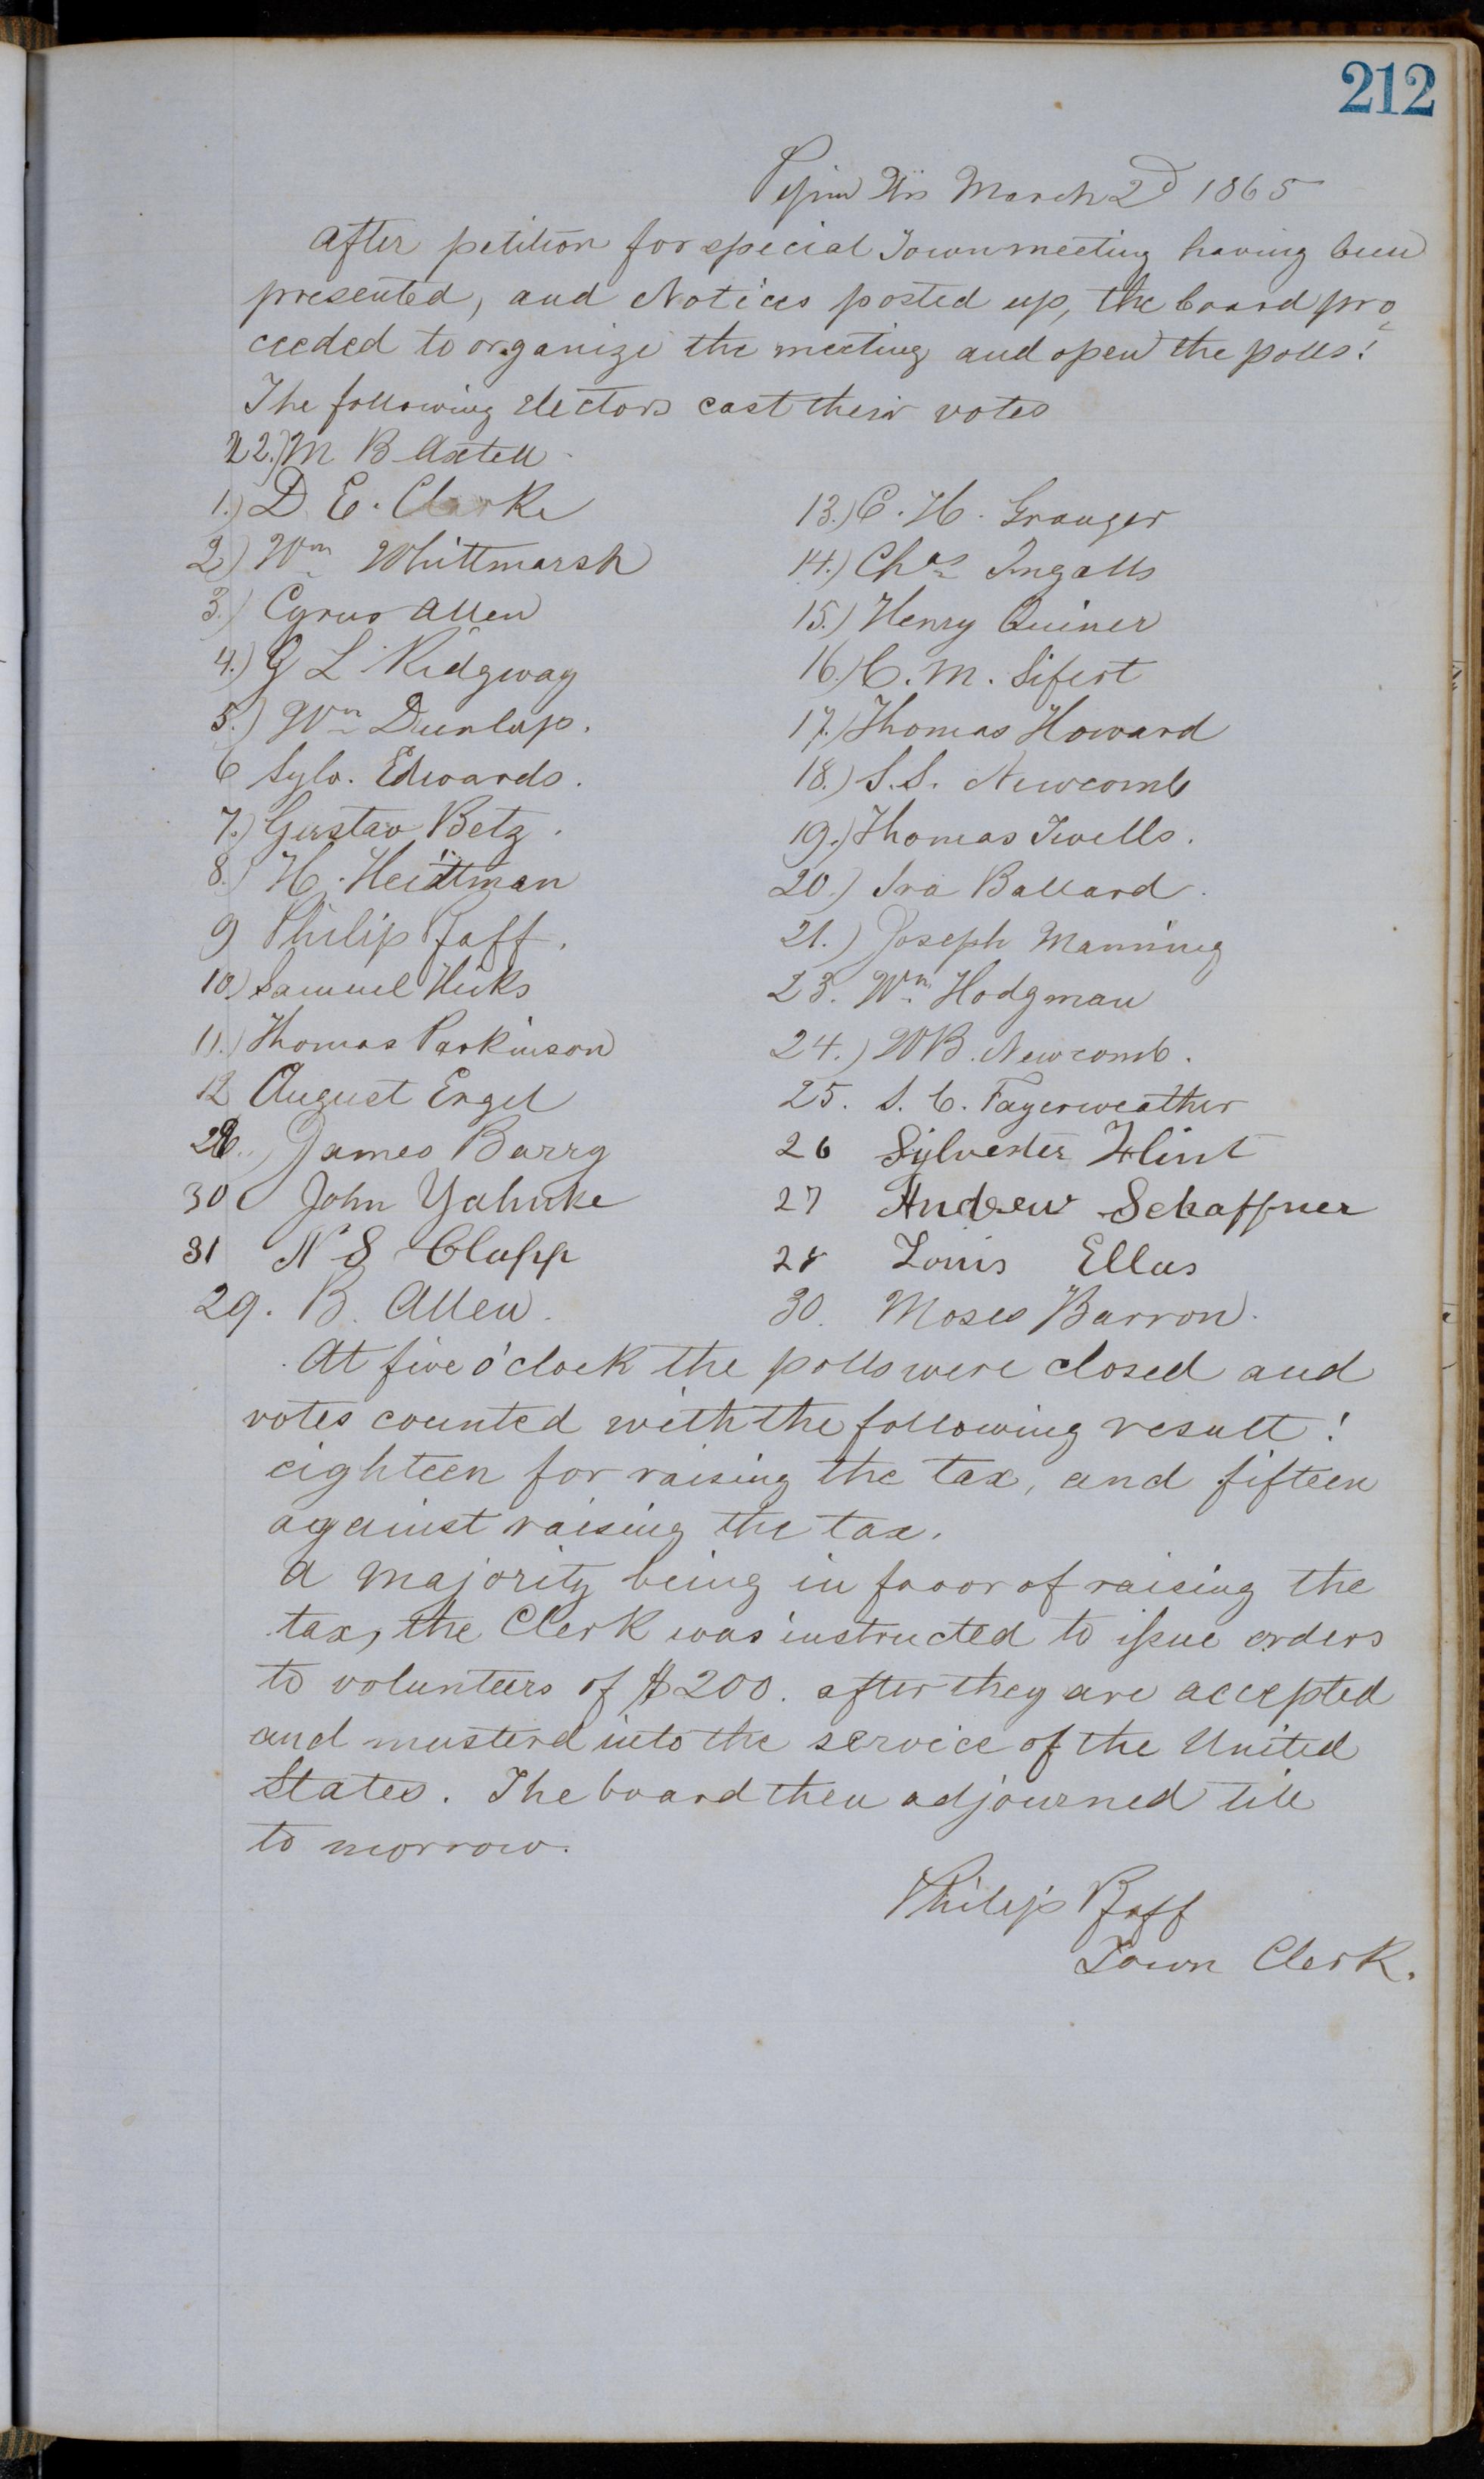 212
Pepin Wis March 2d 1865
After petition for special Town meeting having been
presented, and Notices posted up, the board pro
ceeded to organize the meeting and open the polls!
The following electors cast their votes
22.) M B Axtell
1.) D. E. Clarke
2) Wm Whittmarsh
3.) Cyrus Allen
4.) G L Ridgway
5.) Wm Dunlap.
6 Sylv. Edwards.
7.) Gustav Betz.
8.) H. Heidtman
9 Philip Pfaff.
10.) Samuel Hicks
11.) Thomas Parkinson
12 August Engel
James Barry
30 John Yahnke
31 N S Clapp
29. B. Allen.
13.) C. H. Granger
14.) Chas Ingalls
15.) Henry Quiner
16.) C. M. Sifert
17.) Thomas Howard
18.) S. S. Newcomb
19.) Thomas Twells.
20.) Ira Ballard.
21.) Joseph Manning
23. Wm Hodgman
24.) W B. Newcomb.
25. S. C. Fayerweather
26 Sylvester Flint
27 Andrew Schaffner
28 Louis Ellas
30. Moses Barron.
At five o'clock the polls were closed and
votes counted with the following result!
eighteen for raising the tax, and fifteen
against raising the tax.
A majority being in favor of raising the
tax, the Clerk was instructed to issue orders
to volunteers of $200. after they are accepted
and musterd into the service of the United
States. The board then adjourned till
to morrow.
Philip Pfaff
Town Clerk.